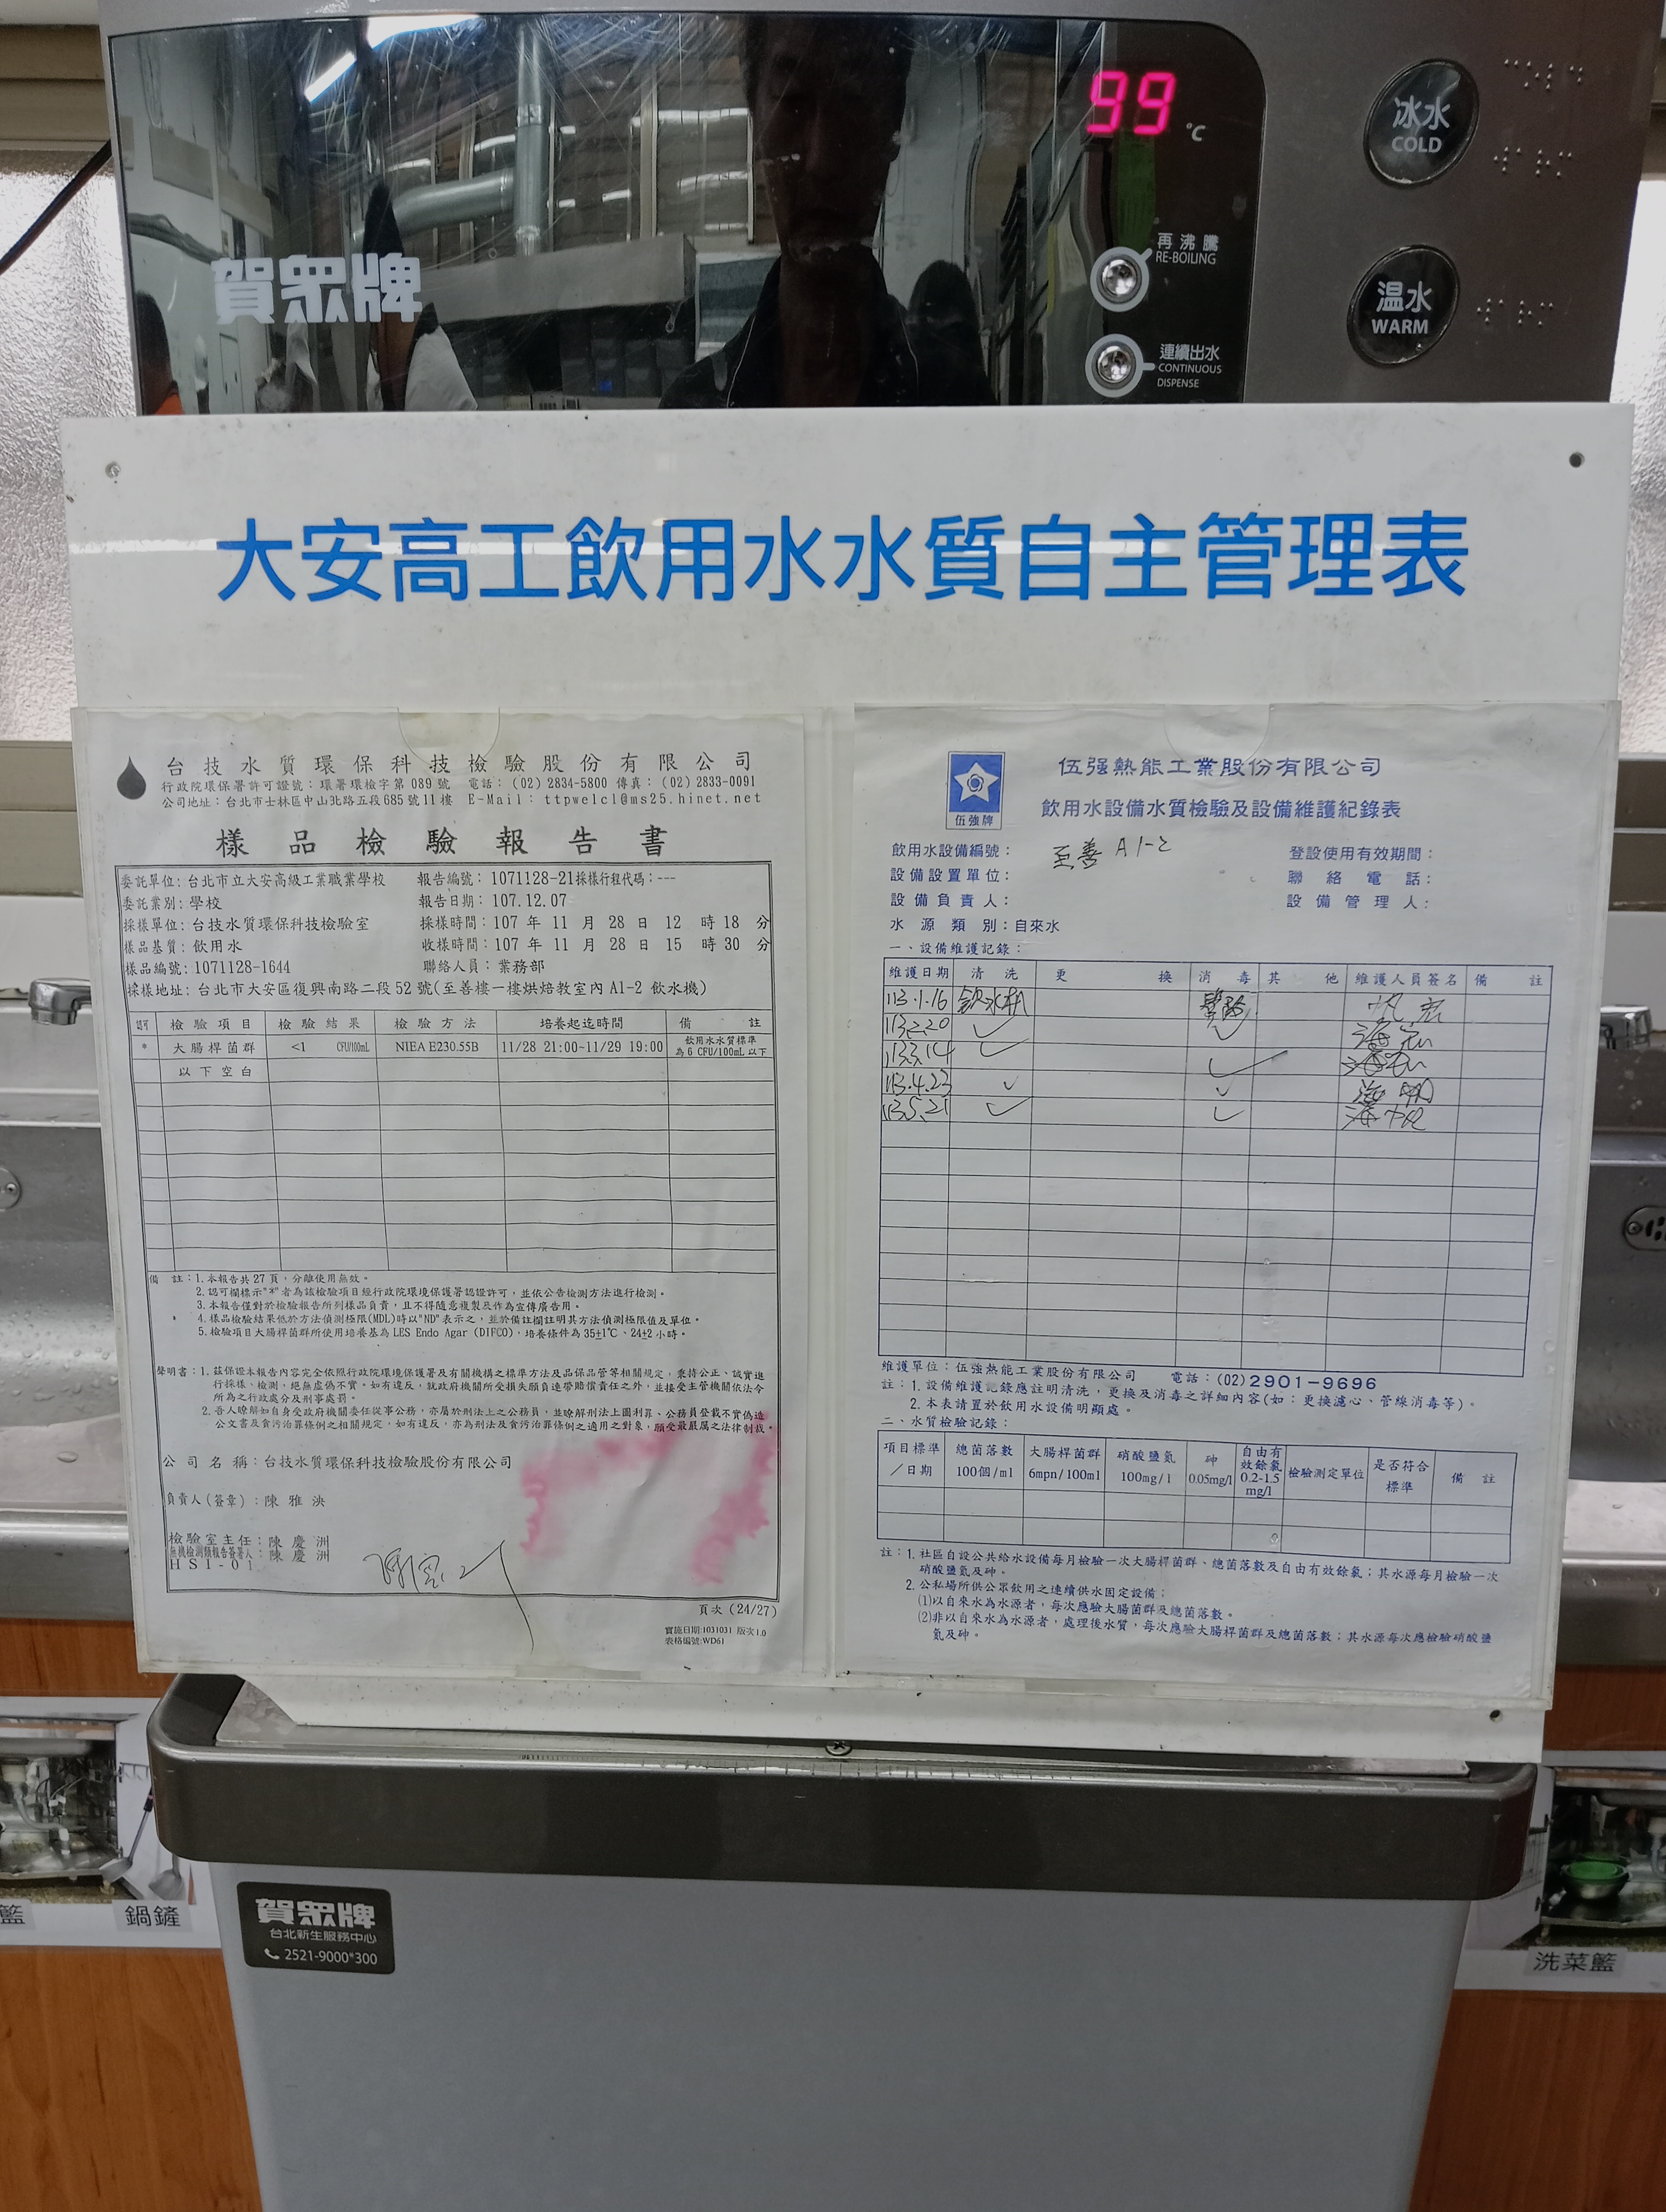 99 °C
冰水
COLD
再沸騰
RE-BOILING
溫水
WARM
賀眾牌
連續出水
CONTINUOUS
DISPENSE
大安高工飲用水水質自主管理表
台技水質環保科技檢驗股份有限公司
行政院環保署許可證號：環署環檢字第 089 號 電話：(02) 2834-5800 傳真：(02) 2833-0091
公司地址：台北市士林區中山北路五段685號11樓 E-Mail：ttpwelcl@ms25.hinet.net
樣品檢驗報告書
委託單位：台北市立大安高級工業職業學校 報告編號：1071128-21採樣行程代碼：---
委託業別：學校 報告日期：107.12.07
採樣單位：台技水質環保科技檢驗室 採樣時間：107 年 11 月 28 日 12 時 18 分
樣品基質：飲用水 收樣時間：107 年 11 月 28 日 15 時 30 分
樣品編號：1071128-1644 聯絡人員：業務部
採樣地址：台北市大安區復興南路二段 52 號(至善樓一樓烘焙教室內 A1-2 飲水機)
認可 檢驗項目 檢驗結果 檢驗方法 培養起迄時間 備註
* 大腸桿菌群 <1 CFU/100mL NIEA E230.55B 11/28 21:00~11/29 19:00 飲用水水質標準
為 6 CFU/100mL 以下
以下空白
備 註：1.本報告共27頁，分離使用無效。
2.認可欄標示"*"者為該檢驗項目經行政院環境保護署認證許可，並依公告檢測方法進行檢測。
3.本報告僅對於檢驗報告所列樣品負責，且不得隨意複製及作為宣傳廣告用。
4.樣品檢驗結果低於方法偵測極限(MDL)時以"ND"表示之，並於備註欄註明其方法偵測極限值及單位。
5.檢驗項目大腸桿菌群所使用培養基為 LES Endo Agar (DIFCO)，培養條件為 35±1℃、24±2 小時。
聲明書：1.茲保證本報告內容完全依照行政院環境保護署及有關機構之標準方法及品保品管等相關規定，秉持公正、誠實進
行採樣、檢測，絕無虛偽不實。如有違反，就政府機關所受損失願負連帶賠償責任之外，並接受主管機關依法令
所為之行政處分及刑事處罰。
2.吾人瞭解如自身受政府機關委任從事公務，亦屬於刑法上之公務員，並瞭解刑法上圖利罪、公務員登載不實偽造
公文書及貪污治罪條例之相關規定，如有違反，亦為刑法及貪污治罪條例之適用之對象，願受最嚴厲之法律制裁。
公司名稱：台技水質環保科技檢驗股份有限公司
負責人(簽章)：陳雅泱
檢驗室主任：陳慶洲
無機檢測類報告簽署人：陳慶洲
HSI-01
頁次 (24/27)
實施日期:1031031 版次1.0
表格編號:WD61
伍強牌
伍強熱能工業股份有限公司
飲用水設備水質檢驗及設備維護紀錄表
飲用水設備編號：至善 A1-2 登設使用有效期間：
設備設置單位： 聯絡電話：
設備負責人： 設備管理人：
水源類別：自來水
一、設備維護記錄：
維護日期 清洗 更換 消毒 其他 維護人員簽名 備註
113.1.16 飲水机
113.2.20 ✓ ✓
113.3.14 ✓ ✓
113.4.23 ✓ ✓
113.5.21 ✓ ✓
維護單位：伍強熱能工業股份有限公司 電話：(02)2901-9696
註：1.設備維護記錄應註明清洗，更換及消毒之詳細內容(如：更換濾心、管線消毒等)。
2.本表請置於飲用水設備明顯處。
二、水質檢驗記錄：
項目標準／日期 總菌落數 100個/ml 大腸桿菌群 6mpn/100ml 硝酸鹽氮 100mg/l 砷 0.05mg/l 自由有效餘氯 0.2-1.5 mg/l 檢驗測定單位 是否符合標準 備註
註：1.社區自設公共給水設備每月檢驗一次大腸桿菌群、總菌落數及自由有效餘氯；其水源每月檢驗一次
硝酸鹽氮及砷。
2.公私場所供公眾飲用之連續供水固定設備；
(1)以自來水為水源者，每次應驗大腸菌群及總菌落數。
(2)非以自來水為水源者，處理後水質，每次應驗大腸桿菌群及總菌落數；其水源每次應檢驗硝酸鹽
氮及砷。
賀眾牌
台北新生服務中心
2521-9000*300
籃
鍋鏟
洗菜籃